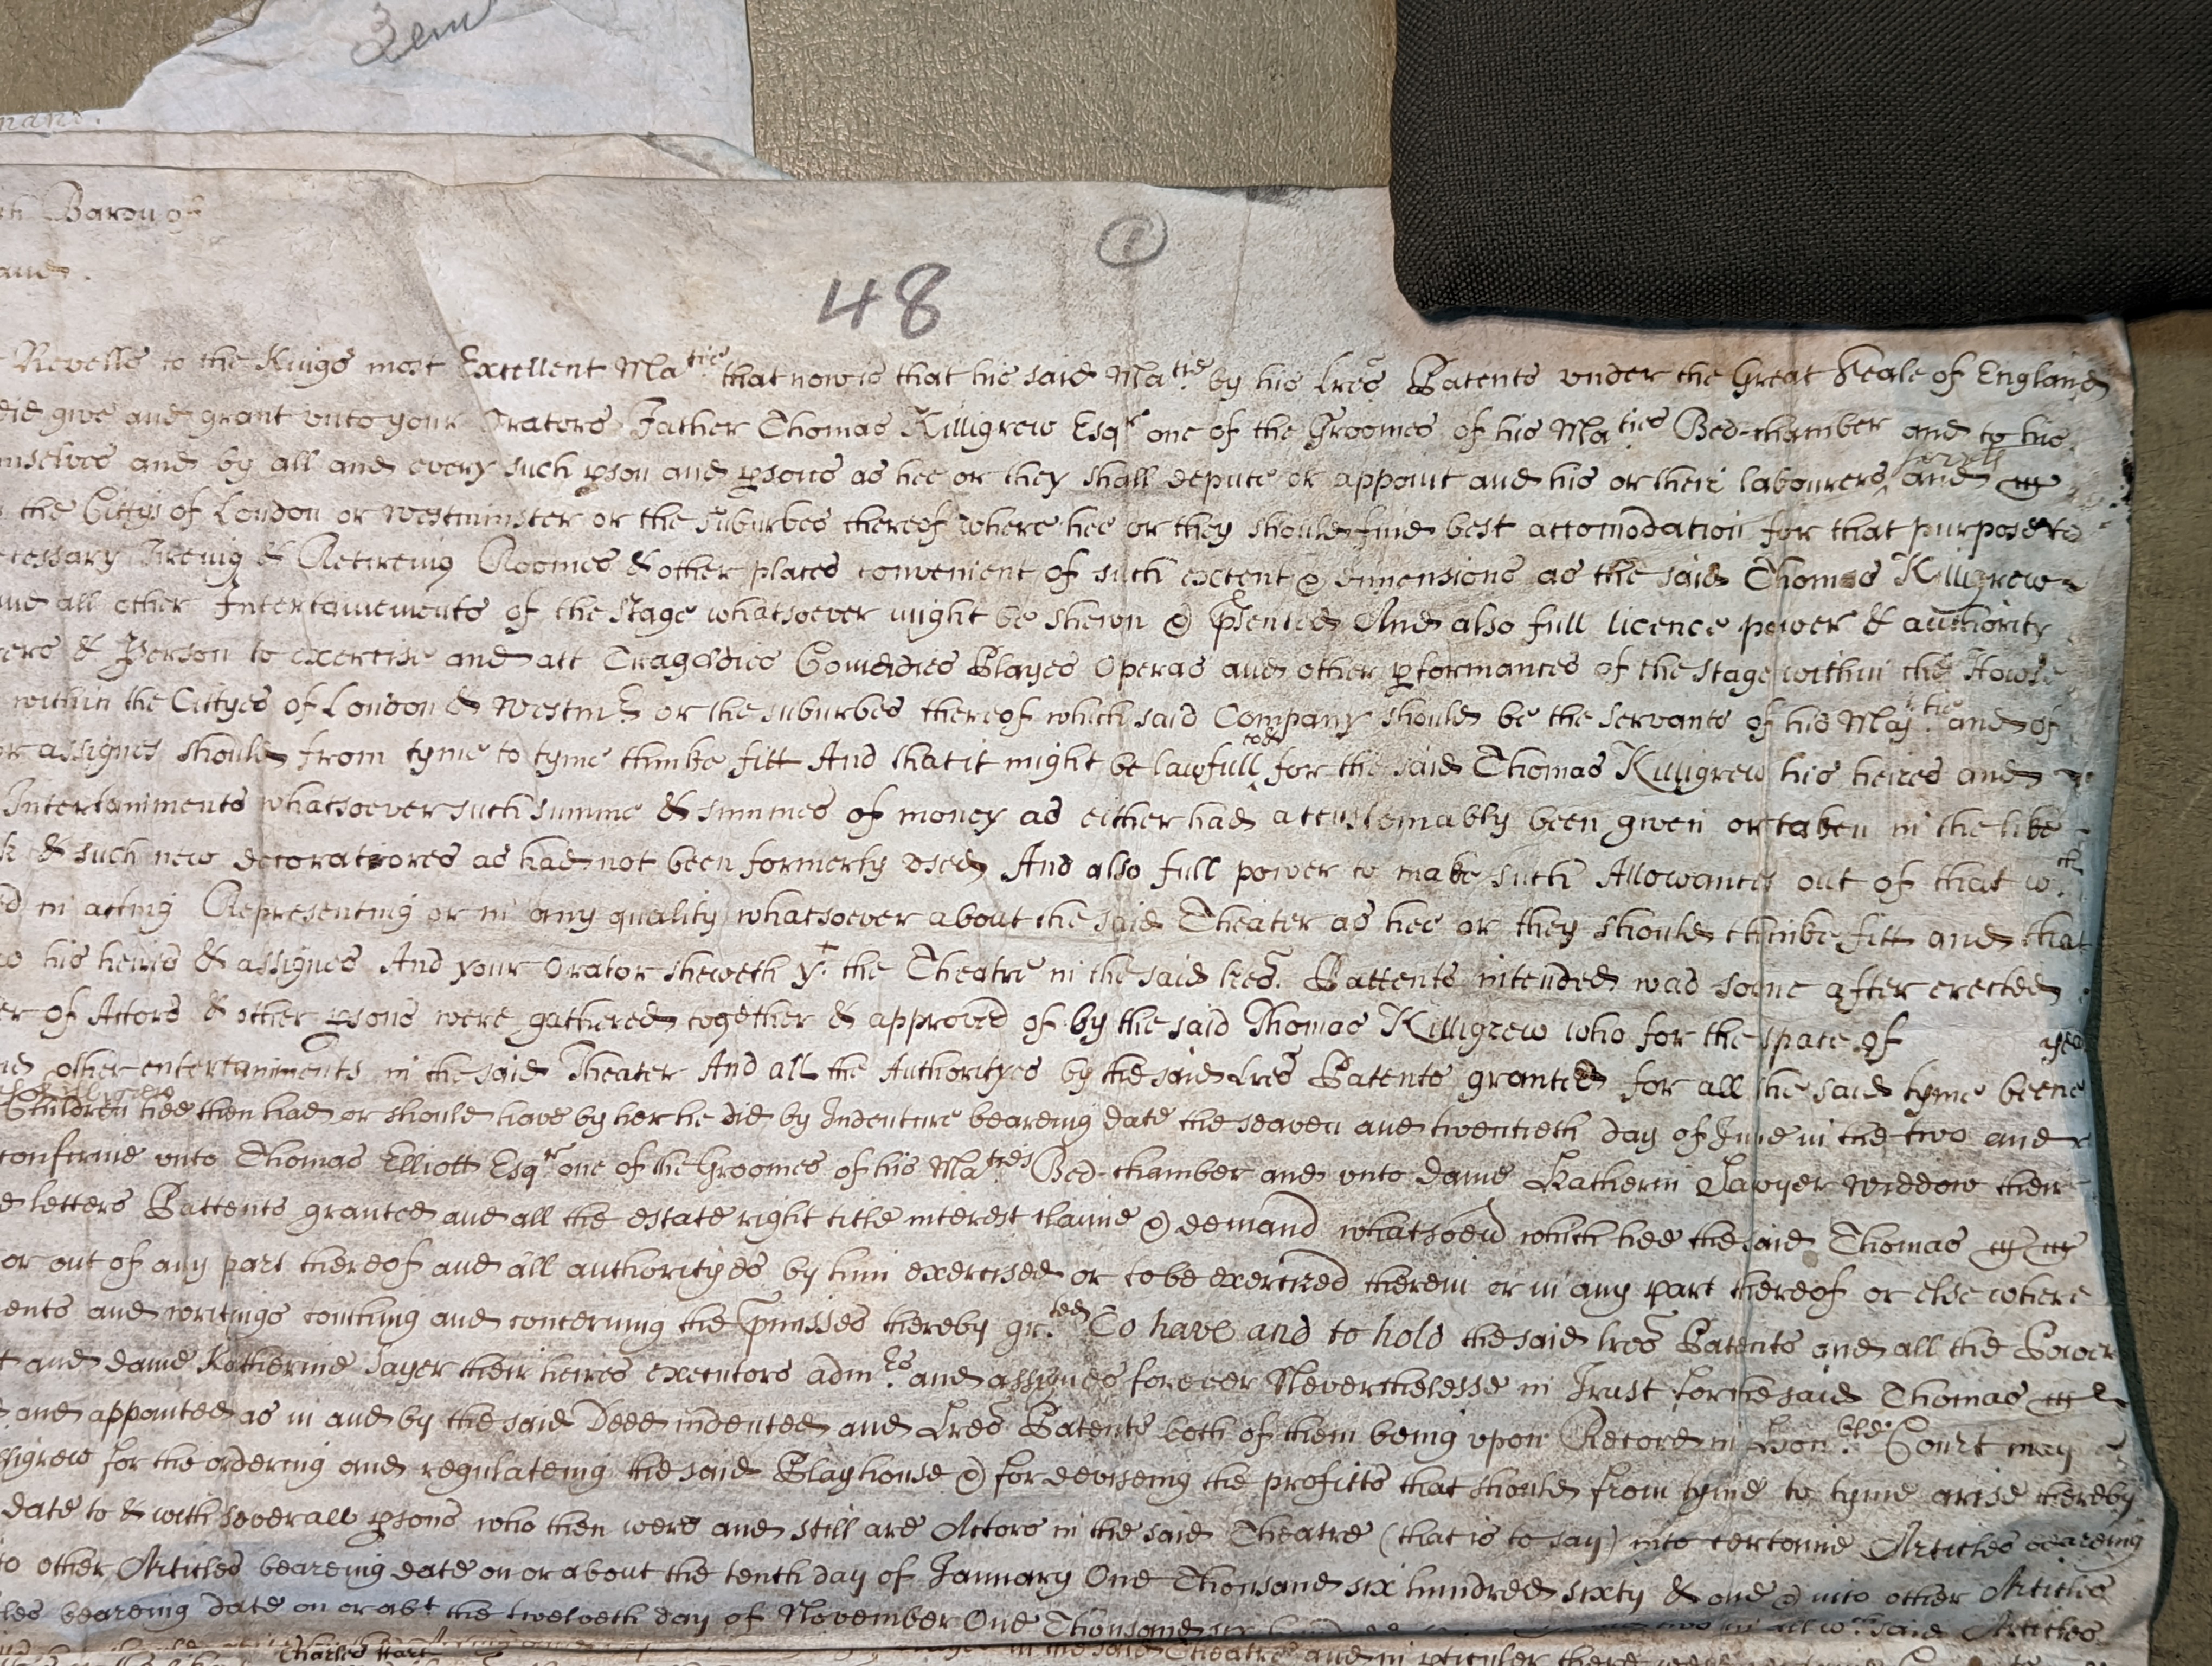 Zem
nant.
Baron of
1
48
Revells to the Kings most Excellent Ma:tie that now is that his said Ma:tie by his Lres Patents vnder the Great Seale of England
did give and grant vnto your Orators Father Thomas Killigrew Esqr one of the Groomes of his Ma:ties Bed-chamber and to his
mselves and by all and every such pson and psons as hee or they shall depute or appoint and his or their labourers and
the Cittys of London or Westminster or the suburbes thereof where hee or they should find best accomodation for that purpose to
cessary Tireing & Retireing Roomes & other places convenient of such extent & dimensions as the said Thomas Killigrew
and all other Intertainements of the Stage whatsoever might be shewn & psented And also full licence power & authority
ers & Person to exercise and act Tragedies Comedies Playes Operas and other pformances of the Stage within the Howse
within the Cittyes of London & Westmr or the suburbes thereof which said Company should be the Servants of his Maj:tie and of
or assignes should from tyme to tyme thinke fitt And that it might be lawfull to & for the said Thomas Killigrew his heires and
Intertainments whatsoever such summe & summes of money as either had accustomably been given or taken in the like
k & such new decorations as had not been formerly vsed And also full power to make such Allowances out of that w:ch
d in acting Representing or in any quality whatsoever about the said Theater as hee or they should thinke fitt and that
his heires & assignes And your Orator sheweth yt the Theatre in the said lres Pattents intended was soone after erected
er of Actors & other psons were gathered together & approved of by the said Thomas Killigrew who for the space of yea
other entertainments in the said Theater And all the Authorityes by the said Lres Patents granted for all the said tyme beene
Killigrew
Children hee then had or should have by her he did by Indenture beareing date the seaven and twentieth day of June in the two and
confirme vnto Thomas Elliott Esqr one of the Groomes of his Ma:ties Bed-chamber and vnto dame Katherin Sawyer Widdow their
d letters Pattents granted and all the estate right title interest claime & demand whatsoever which hee the said Thomas
or out of any part thereof and all authorityes by him exercised or to be exercized therein or in any part thereof or else where
ents and writings touching and concerning the pmisses thereby gr:ted To have and to hold the said lres Patents and all the Power
t and dame Katherine Sayer their heires executors admrs and assignes forever Neverthelesse in Trust for the said Thomas
and appointed as in and by the said Deed indented and Lres Patents both of them being vpon Record in Hon:ble Court may
lligrew for the ordering and regulateing the said Playhouse & for deviseing the profitts that should from tyme to tyme arise thereby
date to & with severall psons who then were and still are Actors in the said Theatre (that is to say) into certaine Articles beareing
to other Articles beareing date on or about the tenth day of January One Thousand six hundred sixty & one & into other Articles
les beareing date on or abt the twelveth day of November One Thousand six two in all wch said Articles
Charles Hart in the said Theatre and in pticuler there